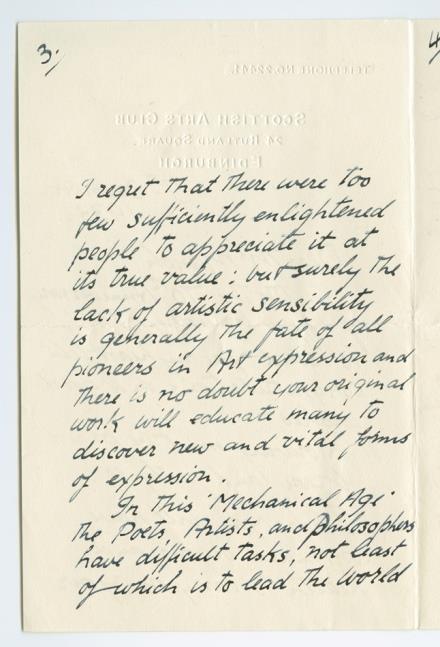 3.
TELEPHONE NO. 22441.
SCOTTISH ARTS CLUB
24 RUTLAND SQUARE.
EDINBURGH
I regret that there were too
few sufficiently enlightened
people to appreciate it at
its true value; but surely the
lack of artistic sensibility
is generally the fate of all
pioneers in Art expression and
there is no doubt your original
work will educate many to
discover new and vital forms
of expression.
In this 'Mechanical Age'
the Poets, Artists, and Philosophers
have difficult tasks, not least
of which is to lead the world
4